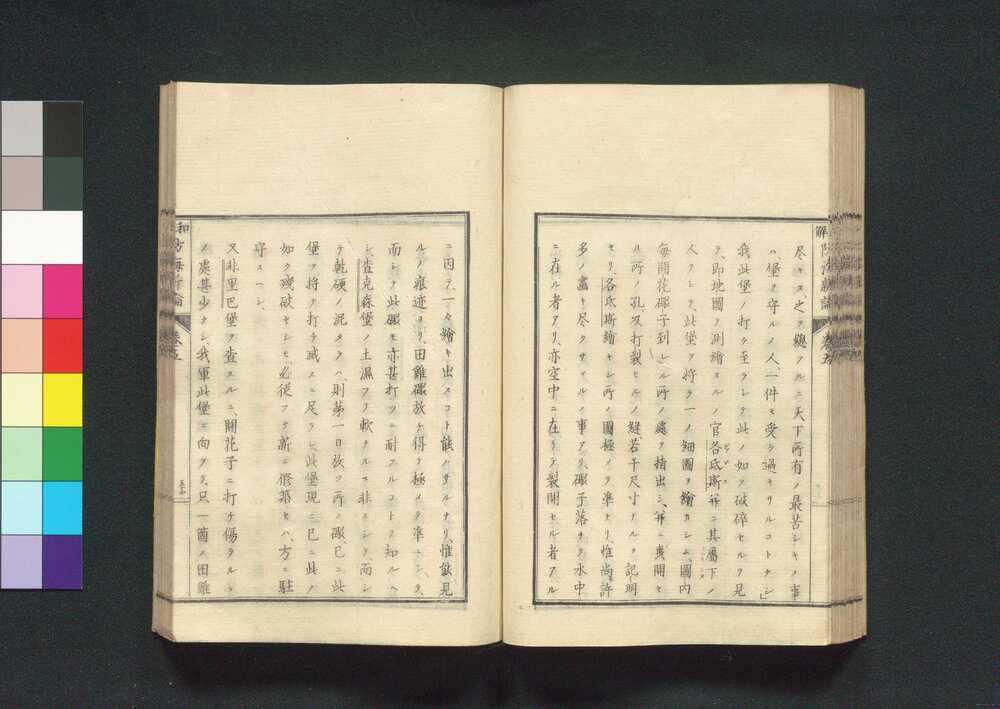 尽キス之ヲ總フルニ天下所有ノ最苦シキノ事
ハ、堡ヲ守ルノ人一件モ受ケ過キサルコトナシ」
我此堡ノ打チ至ラレテ此ノ如ク破碎セルヲ見
テ、即地圖ヲ測繪スルノ官各氏斯幷ニ其屬下ノ
人ヲシテ、此堡ヲ将テ一ノ細圖ヲ繪カシム、圖内
毎開花礟子到レル所ノ處ヲ指出シ、幷ニ裏開セ
ル所ノ孔、及打裂セルノ縫若干尺寸ナルヲ記明
セリ、各氏斯繪キシ所ノ圖極メテ準セリ、惟尚許
多ノ畵キ尽クサヽルノ事アリ、礟子落チテ水中
ニ在ル者アリ、亦空中ニ在リテ裂開セル者アル
ニ因テ、一々繪キ出スコト能ハサルナリ、惟能見
ルノ痕迹ヨリ、田雞礟放チ得テ極メテ準ニシテ、
而シテ此礟モ亦甚打ツニ耐フルコトヲ知ルヘ
シ、査克森堡ノ土濕フテ軟ナルニ非スシテ、而シ
テ乾硬ノ泥ナラハ、則第一日放ツ所ノ礟已ニ此
堡ヲ将テ打チ滅スニ足ラン、此堡現ニ已ニ此ノ
如ク殘破セシモ、必從フテ新ニ修築セハ、方ニ駐
守スヘシ、
又非里巴堡ヲ査スルニ、開花子ニ打チ傷ラルヽ
ノ處甚少クシ、我軍此堡ニ向フテ、只一箇ノ田雞